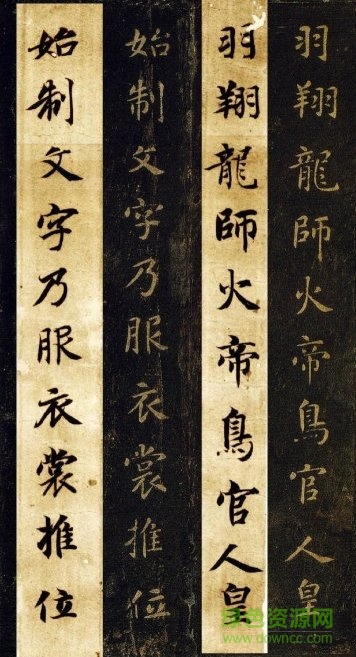 羽翔龍師火帝鳥官人皇
羽翔龍師火帝鳥官人皇
始制文字乃服衣裳推位
始制文字乃服衣裳推位
绿色资源网
www.downcc.com